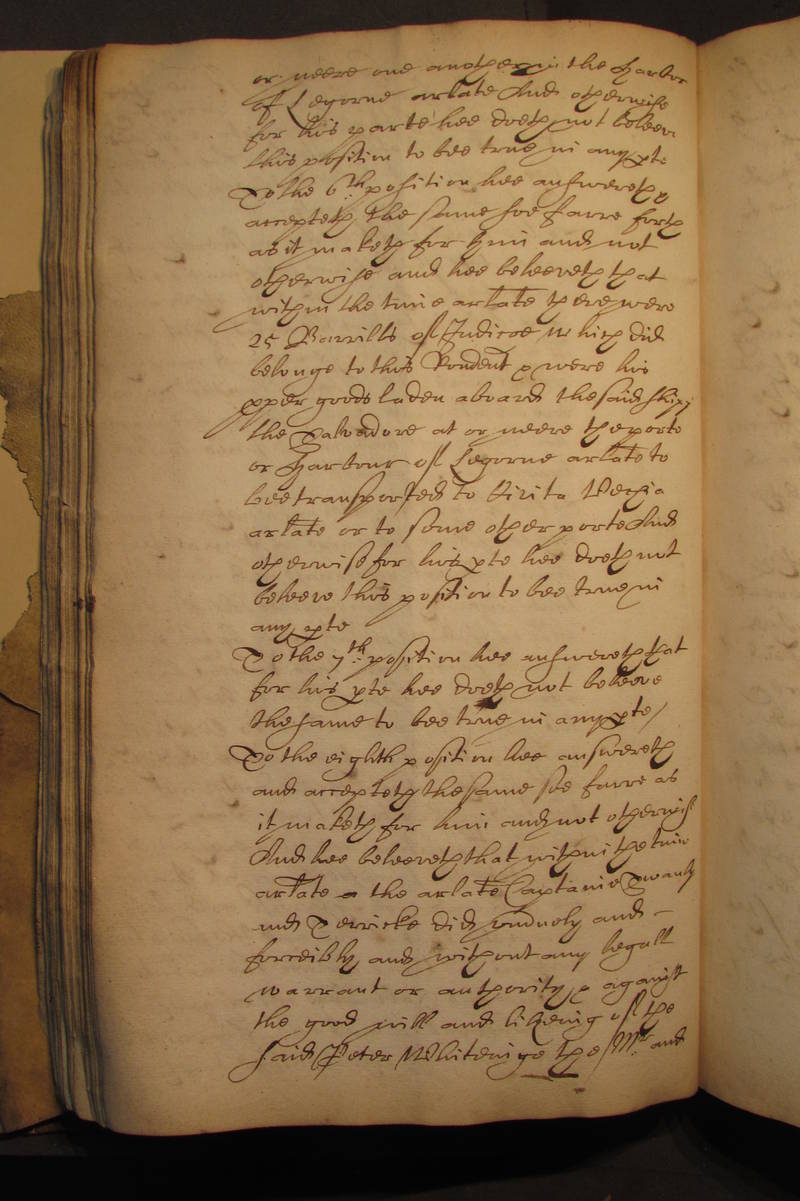 or neere one another in the harbor
of Legorne arlate And otherwise
for his parte hee doeth not beleeve
this position to bee true in any pte
To the 6th position hee answereth &
accepteth the same soe farre forth
as it maketh for him and not
otherwise and hee beleeveth that
within the time arlate there were
25 Barrills of Indicoe which did
belonge to this Rondent & were his
pper goods laden aboard the said shipp
the Salvadore at or neere the porte
or Harbour of Legorne arlate to
bee transported to Civita Vechia
arlate or to some other porte And
otherwise for his pte hee doeth not
beleeve this position to bee true in
any pte
To the 7th position hee answereth that
for his pte hee doeth not beleeve
the same to bee true in any pte /
To the eighth position hee answereth
and accepteth the same soe farre as
it maketh for him and not otherwise
And hee beleeveth that within the time
arlate the arlate Captaine Swanly
and Derricke did unduely and
forceibly and without any legall
warrant or authority & against
the good will and likeing of the
said Peter Whiteinge the Mr and